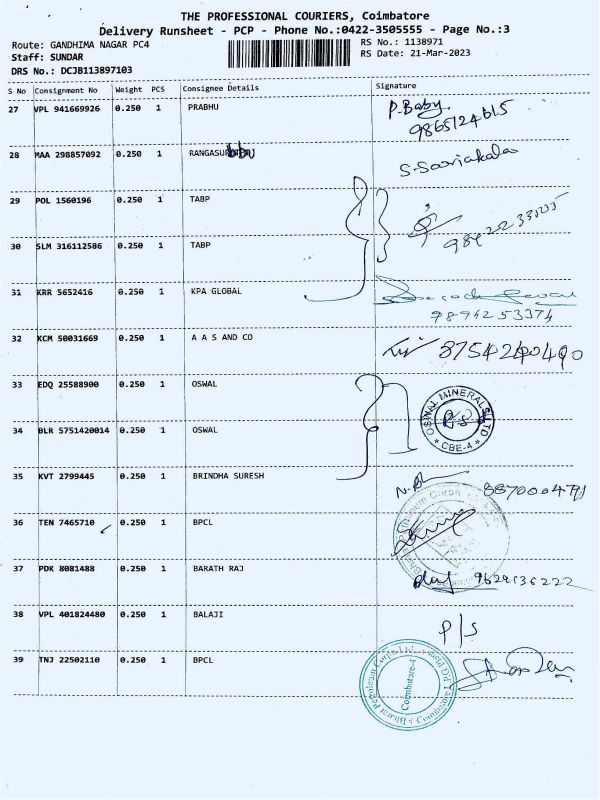 THE PROFESSIONAL COURIERS, Coimbatore
Delivery Runsheet - PCP - Phone No.:0422-3505555 - Page No.:3
Route: GANDHIMA NAGAR PC4
RS No.: 1138971
Staff: SUNDAR
RS Date: 21-Mar-2023
DRS No.: DCJB113897103
S No Consignment No Weight PCS Consignee Details Signature
27 VPL 941669926 0.250 1 PRABHU P.Baby
9865124615
28 MAA 298857092 0.250 1
29 POL 1560196 0.250 1 TABP
30 SLM 316112586 0.250 1 TABP
31 KRR 5652416 0.250 1 KPA GLOBAL
9894253374
32 KCM 50031669 0.250 1 A A S AND CO
33 EDQ 25588900 0.250 1 OSWAL
OSWAL MINERALS LTD
CBE-4
34 BLR 5751420014 0.250 1 OSWAL
35 KVT 2799445 0.250 1 BRINDHA SURESH
36 TEN 7465710 0.250 1 BPCL
37 PDK 8081488 0.250 1 BARATH RAJ
38 VPL 401824480 0.250 1 BALAJI P/S
39 TNJ 22502110 0.250 1 BPCL
Coimbatore-4